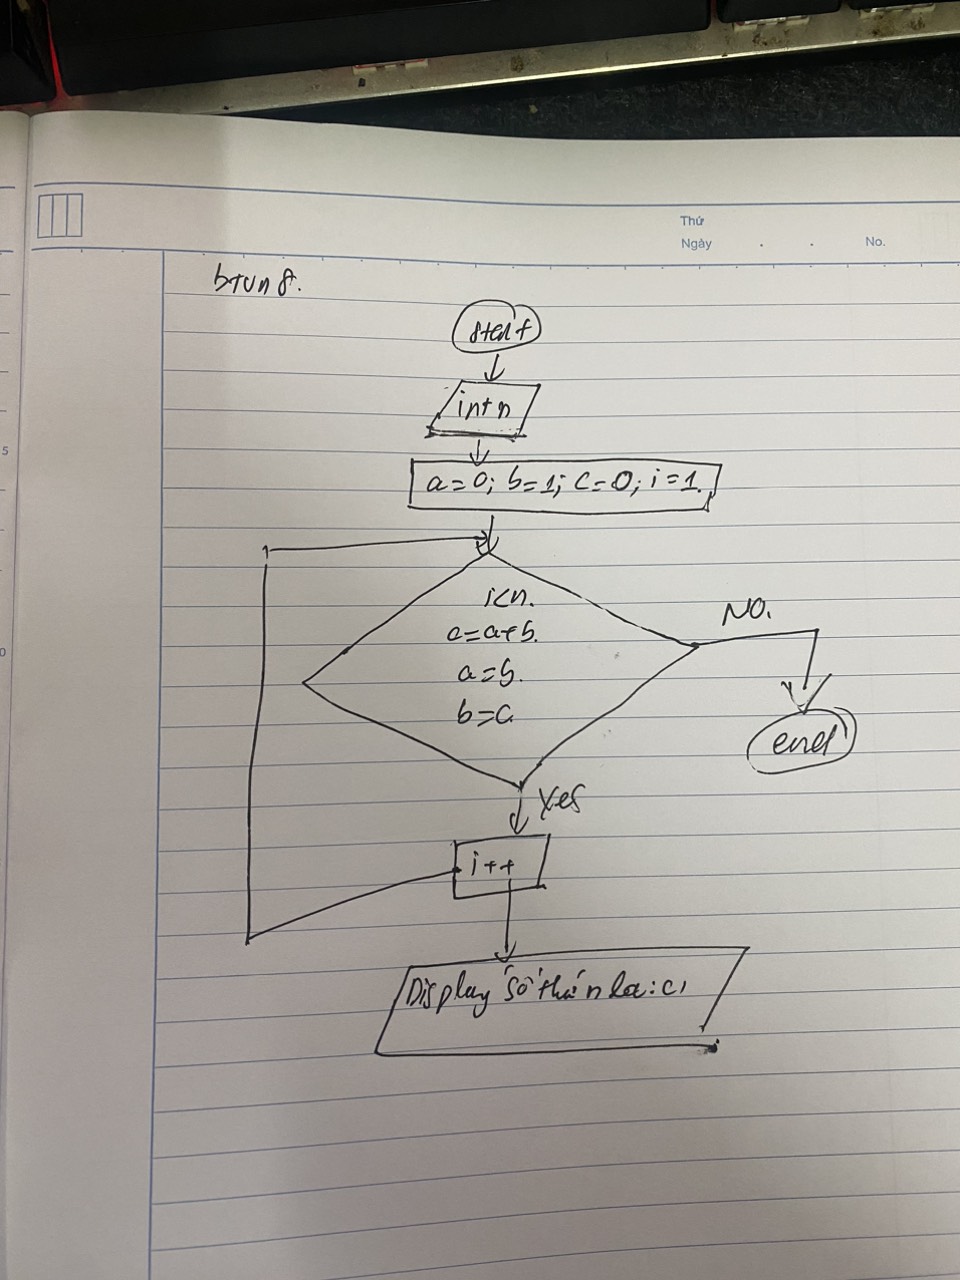 Thứ
Ngày . . No.
btvn 8.
start
int n
a=0; b=1; c=0; i=1.
i<n.
c=a+b.
a=b.
b=c
NO.
end
Yes
i++
Display "số thứ n là: c,
5
0